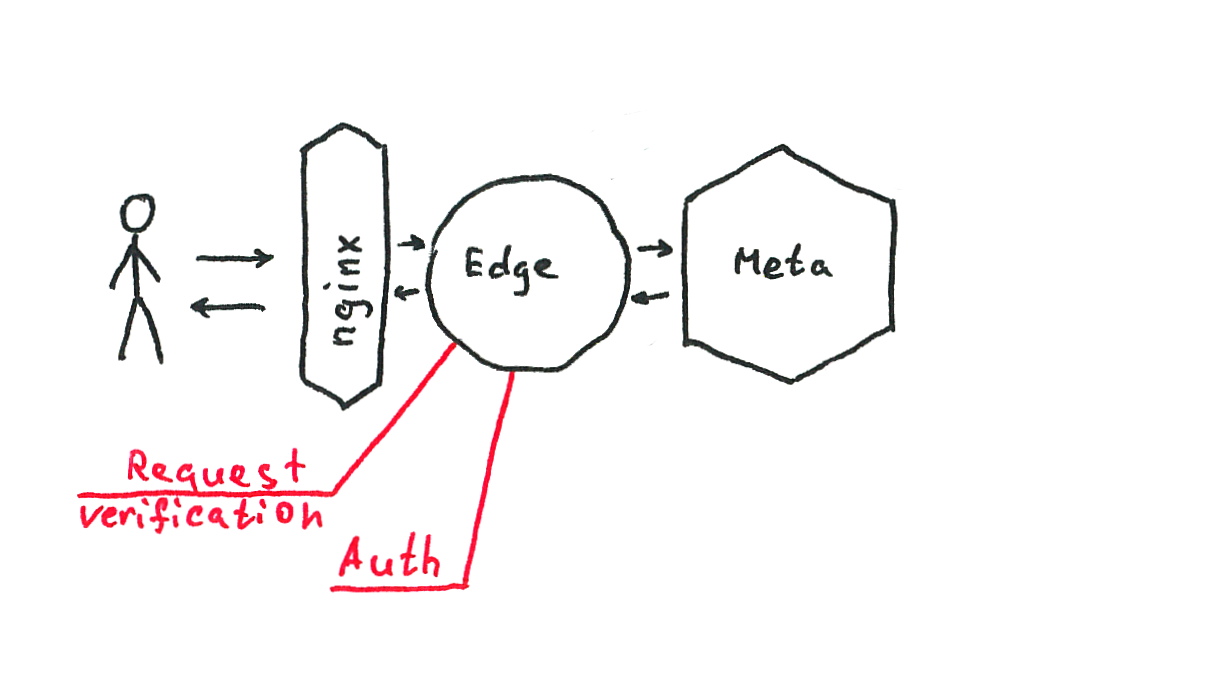 nginx
Edge
Meta
Request
verification
Auth